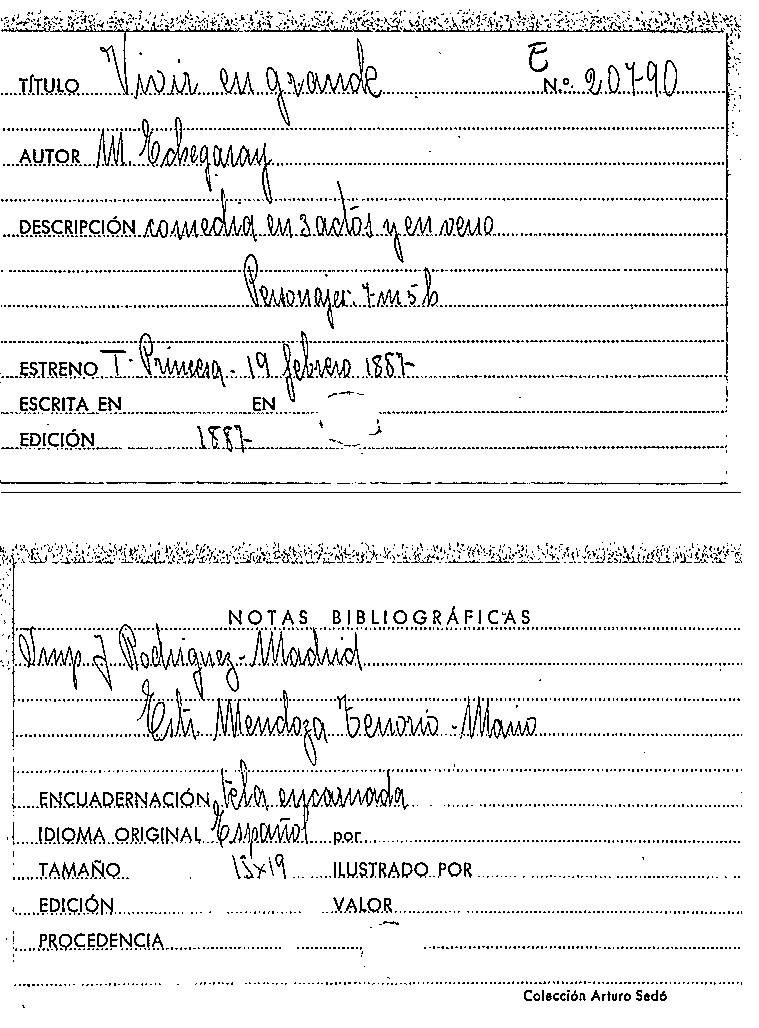 TÍTULO Vivir en grande E N.º 207-90
AUTOR M. Echegaray
DESCRIPCIÓN comedia en 3 actos y en verso
Personajes. 7 m 5 h
ESTRENO T. Princesa - 19 febrero 1887-
ESCRITA EN EN
EDICIÓN 1887-
NOTAS BIBLIOGRÁFICAS
Imp. J Rodriguez - Madrid
Estr. Mendoza Tenorio - Mario
ENCUADERNACIÓN tela encarnada
IDIOMA ORIGINAL Español por
TAMAÑO 13x19 ILUSTRADO POR
EDICIÓN VALOR
PROCEDENCIA
Colección Arturo Sedó